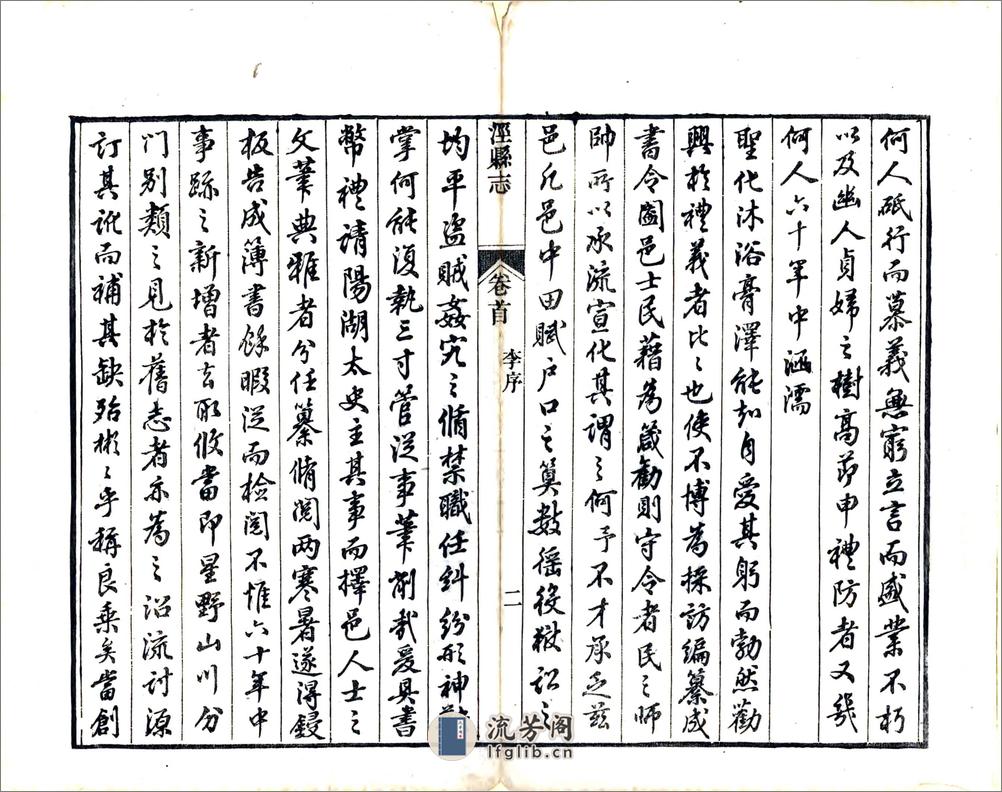 何人砥行而慕義無窮立言而盛業不朽
以及幽人貞婦之樹高節申禮防者又幾
何人六十年中涵濡
聖化沐浴膏澤能知自愛其躬而勃然勸
興於禮義者比比也使不博為採訪編纂成
書令闔邑士民藉為箴勸則守令者民之師
帥所以承流宣化其謂之何予不才承乏茲
邑凡邑中田賦戶口之算數徭役獄訟之
涇縣志
卷首
李序
二
均平盜賊姦宄之脩禁職任糾紛形神
掌何能復執三寸管從事筆削哉爰具書
幣禮請陽湖太史主其事而擇邑人士之
文筆典雅者分任纂脩閱兩寒暑遂得鋟
板告成簿書餘暇從而檢閱不惟六十年中
事跡之新增者去取攸當即星野山川分
門別類之見於舊志者亦為之沿流討源
訂其訛而補其缺殆彬彬乎稱良乘矣當創
流芳阁
lfglib.cn